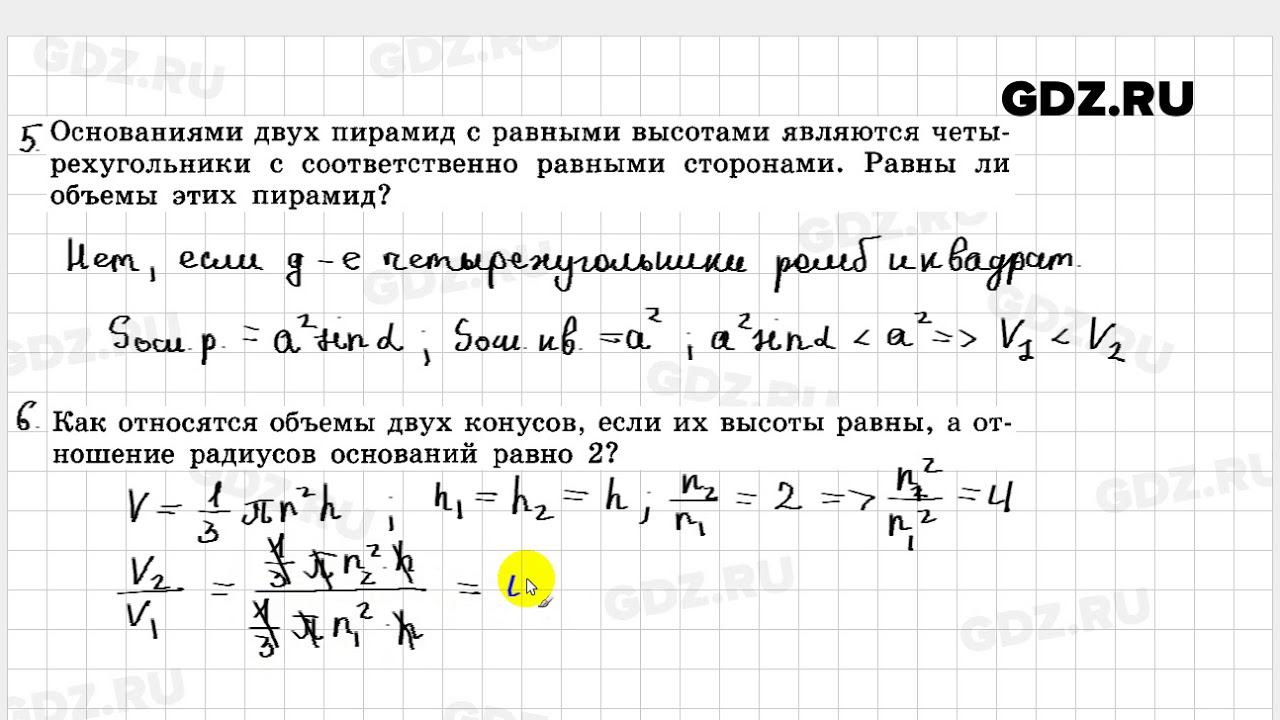 GDZ.RU
5. Основаниями двух пирамид с равными высотами являются четы-
рехугольники с соответственно равными сторонами. Равны ли
объемы этих пирамид?
Нет, если д-е четырехугольники ромб и квадрат.
Sосн.р. = a² sin α ; Sосн.кв. = a² ; a² sin α < a² => V₁ < V₂
6. Как относятся объемы двух конусов, если их высоты равны, а от-
ношение радиусов оснований равно 2?
V = 1/3 πr²h ; h₁ = h₂ = h ; r₂/r₁ = 2 => r₂²/r₁² = 4
V₂/V₁ = (1/3 πr₂² · h)/(1/3 πr₁² · h) =